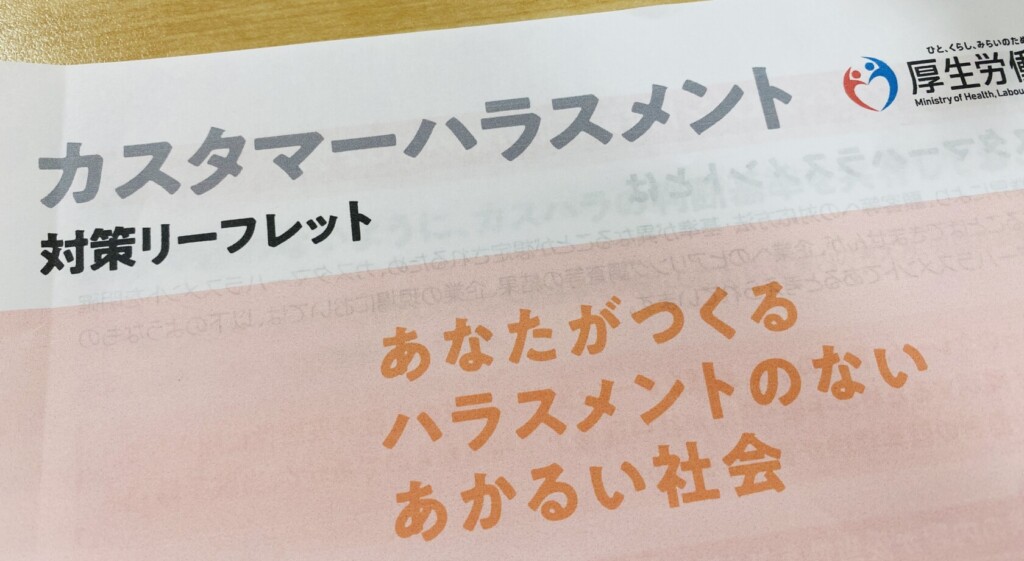 ひと、くらし、みらいのため
厚生労働
Ministry of Health, Labou
カスタマーハラスメント
対策リーフレット
あなたがつくる
ハラスメントのない
あかるい社会